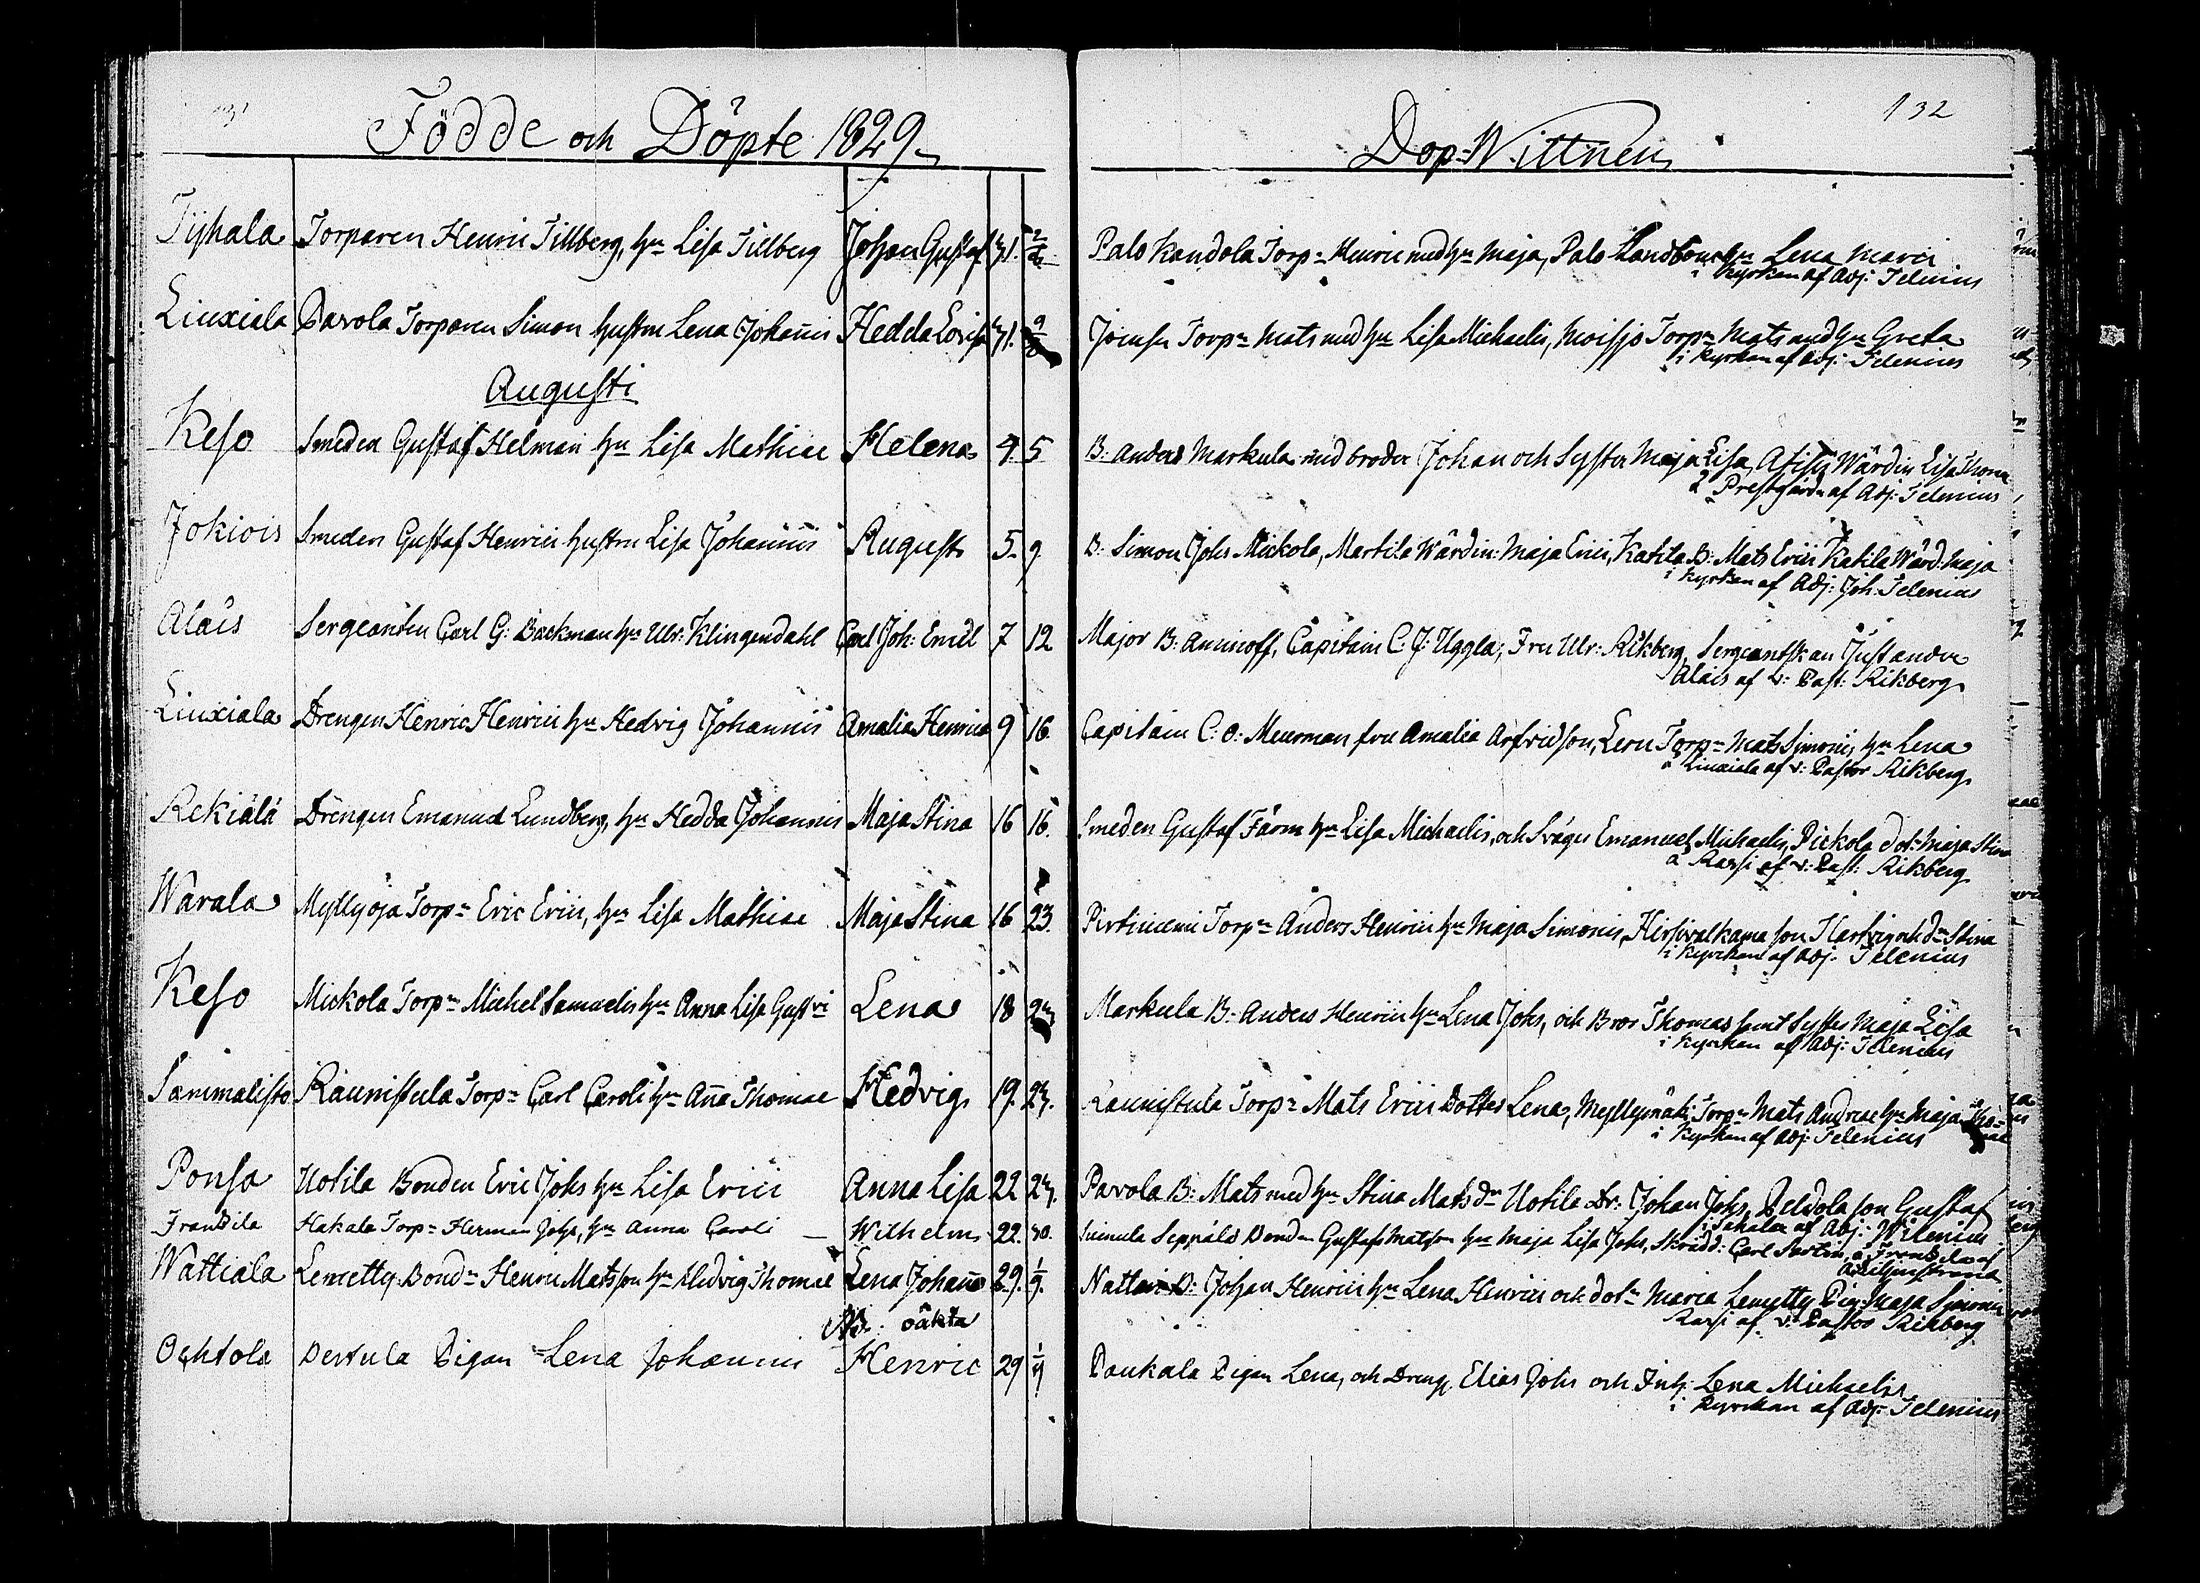 131
Födde och Döpte 1829
Tyhala Torparen Henric Tillberg, hu Lisa Tillberg Johan Gustaf 31. 2/8
Liuxiala Pavola Torparen Simon hustru Lena Johannis Hedda Lovisa 31. 9/8
Augusti
Keso Smeden Gustaf Helman hu Lisa Mathiae Helena 4. 5
Jokiois Smeden Gustaf Henrici hustru Lisa Johannis August 5. 9
Alais Sergeanten Carl G: Backman hu Ulr: Klingendahl Carl Joh: Emill 7 12
Liuxiala Drengen Henric Henrici hu Hedvig Johannis Amalia Henrica 9 16.
Rekiälä Drengen Emanuel Lundberg, hu Hedda Johannis Maja Stina 16 16.
Warala Myllyoja Torp= Eric Erici, hu Lisa Mathiae Maja Stina 16 23.
Keso Mickola Torp= Michel Samuelis hu Anna Lisa Gustvi Lena 18 23
Sanimalisto Raunistula Torp= Carl Caroli hu Aña Thomae Hedvig 19. 23.
Ponsa Uotila Bonden Eric Johs hu Lisa Erici Anna Lisa 22 23.
Frantsila Hakala Torp= Herman Johs, hu Anna Caroli — Wilhelm 22. 30.
Wattiala Lemetty Bond= Henric Matsson hu Hedvig Thomae Lena Johana 29. 1/9.
NB. oäkta
Ochtola Perttula Pigan Lena Johannis Henric 29 1/9
132
Dop=Wittnen
Palo Kandola Torp= Henric med hu Maja, Palo Landbond hu Lena Marci
i kyrkan af Adj: Telenius
Torp= Mats med hu Lisa Michaelis, Moisjo Torp= Mats med hu Greta
i kyrkan af Adj: Telenius
B: Anders Markula med broder Johan och Syster Maja Lisa, Wärdin Lisa Thoma
å Prestgårdn af Adj: Telenius
B: Simon Johs Mickola, Martila Wärdin: Maja Erici, Katila B: Mats Erici Katila Wärd: Maja
i kyrkan af Adj: Joh: Telenius
Major B: Aminoff, Capitain C: J: Uggla, Fru Ulr: Rikberg, Sergeantskan Justander
Alais af v: Past: Rikberg
Capitain C: O: Meurman fru Amalia Arfvidson, Leru Torp= Mats Simonis hu Lena
å Liuxiala af v: Pastor Rikberg
Smeden Gustaf Färm hu Lisa Michaelis, och Svåger Emanuel Michaelis, Pickola dotr Maja Stina
å Rarsi af v: Past: Rikberg
Pirtiniemi Torp= Anders Henrici hu Maja Simonis, Hirsivalkama son Hartvig och dr Stina
i Kyrckan af Adj. Telenius
Markula B: Anders Henrici hu Lena Johs, och Bror Thomas samt Syster Maja Lisa
i kyrckan af Adj: Telenius
Raunistula Torp= Mats Erici Dotter Lena, Myllymäki Torp= Mats Andreae hu Maja Tho=
i Kyrkan af Adj: Telenius mae
Pavola B: Mats med hu Stina Mats dr Uotila Dr: Johan Johs, Peldola son Gustaf
i Sahalax af Adj: Wilenius
Suinula Seppälä Bonden Gustaf Matsson hu Maja Lisa Johs, Skrädd: Carl å Frantsila af
Nattari B: Johan Henrici hu Lena Henrici och dotr Maria Lemetty Pig: Maja Simonis
Rarsi af v: Pastor Rikberg
Paukala Pigan Lena, och Dreng. Elias Johs och Inh: Lena Michaelis
i Kyrckan af Adj: Telenius